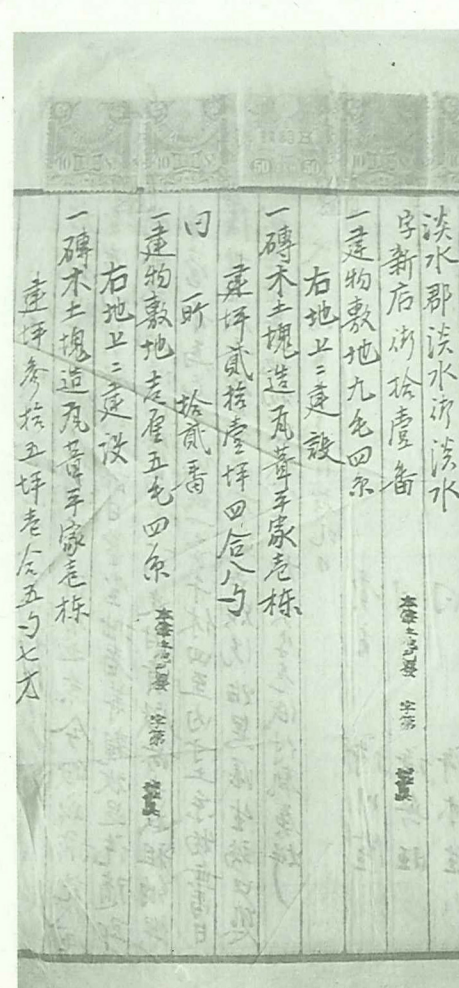 淡水郡淡水街淡水
字新店街拾壹番
一建物敷地九毛四糸
右地上ニ建設
一磚木土塊造瓦葺平家壱棟
建坪貳拾壹坪四合八勺
同所拾貳番
一建物敷地壱厘五毛四糸
右地上ニ建設
一磚木土塊造瓦葺平家壱棟
建坪參拾五坪壱合五勺七才